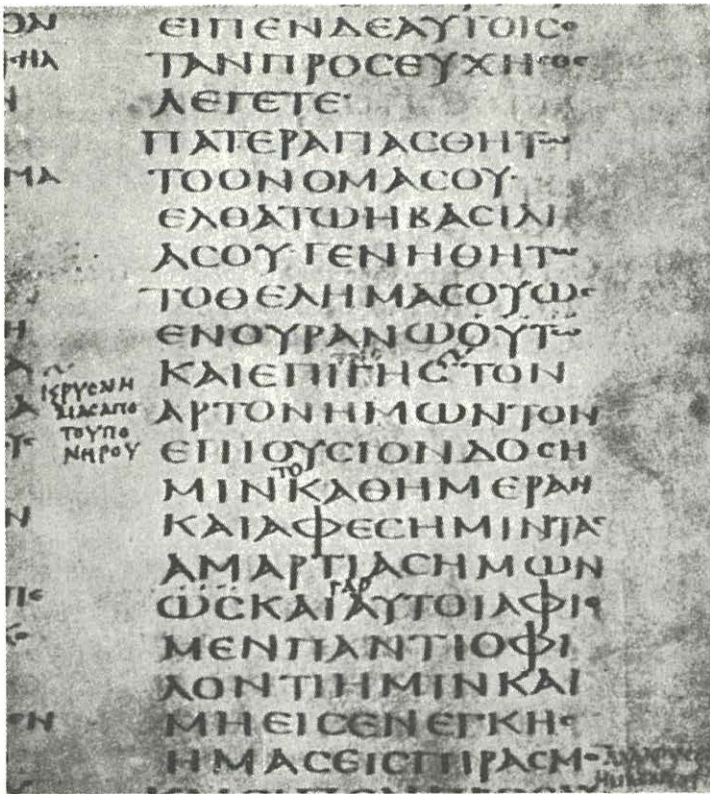 ΕΙΠΕΝΔΕΑΥΤΟΙϹΟ
ΤΑΝΠΡΟϹΕΥΧΗϹΘΕ
ΛΕΓΕΤΕ·
ΠΑΤΕΡΑΓΙΑϹΘΗΤΩ
ΤΟΟΝΟΜΑϹΟΥ·
ΕΛΘΑΤΩΗΒΑϹΙΛΙ
ΑϹΟΥ·ΓΕΝΗΘΗΤΩ
ΤΟΘΕΛΗΜΑϹΟΥΩϹ
ΕΝΟΥΡΑΝΩΟΥΤΩ
ΚΑΙΕΠΙΓΗϹΤΟΝ
ΑΡΤΟΝΗΜΩΝΤΟΝ
ΕΠΙΟΥϹΙΟΝΔΟϹΗ
ΤΟ
ΜΙΝΚΑΘΗΜΕΡΑΝ
ΚΑΙΑΦΕϹΗΜΙΝΤΑϹ
ΑΜΑΡΤΙΑϹΗΜΩΝ
ΓΑΡ
ΩϹΚΑΙΑΥΤΟΙΑΦΙΟ
ΜΕΝΠΑΝΤΙΟΦΙ
ΛΟΝΤΙΗΜΙΝΚΑΙ
ΜΗΕΙϹΕΝΕΓΚΗϹ
ΗΜΑϹΕΙϹΠΙΡΑϹΜΟ
ΤΟΥΠΟ
ΝΗΡΟΥ